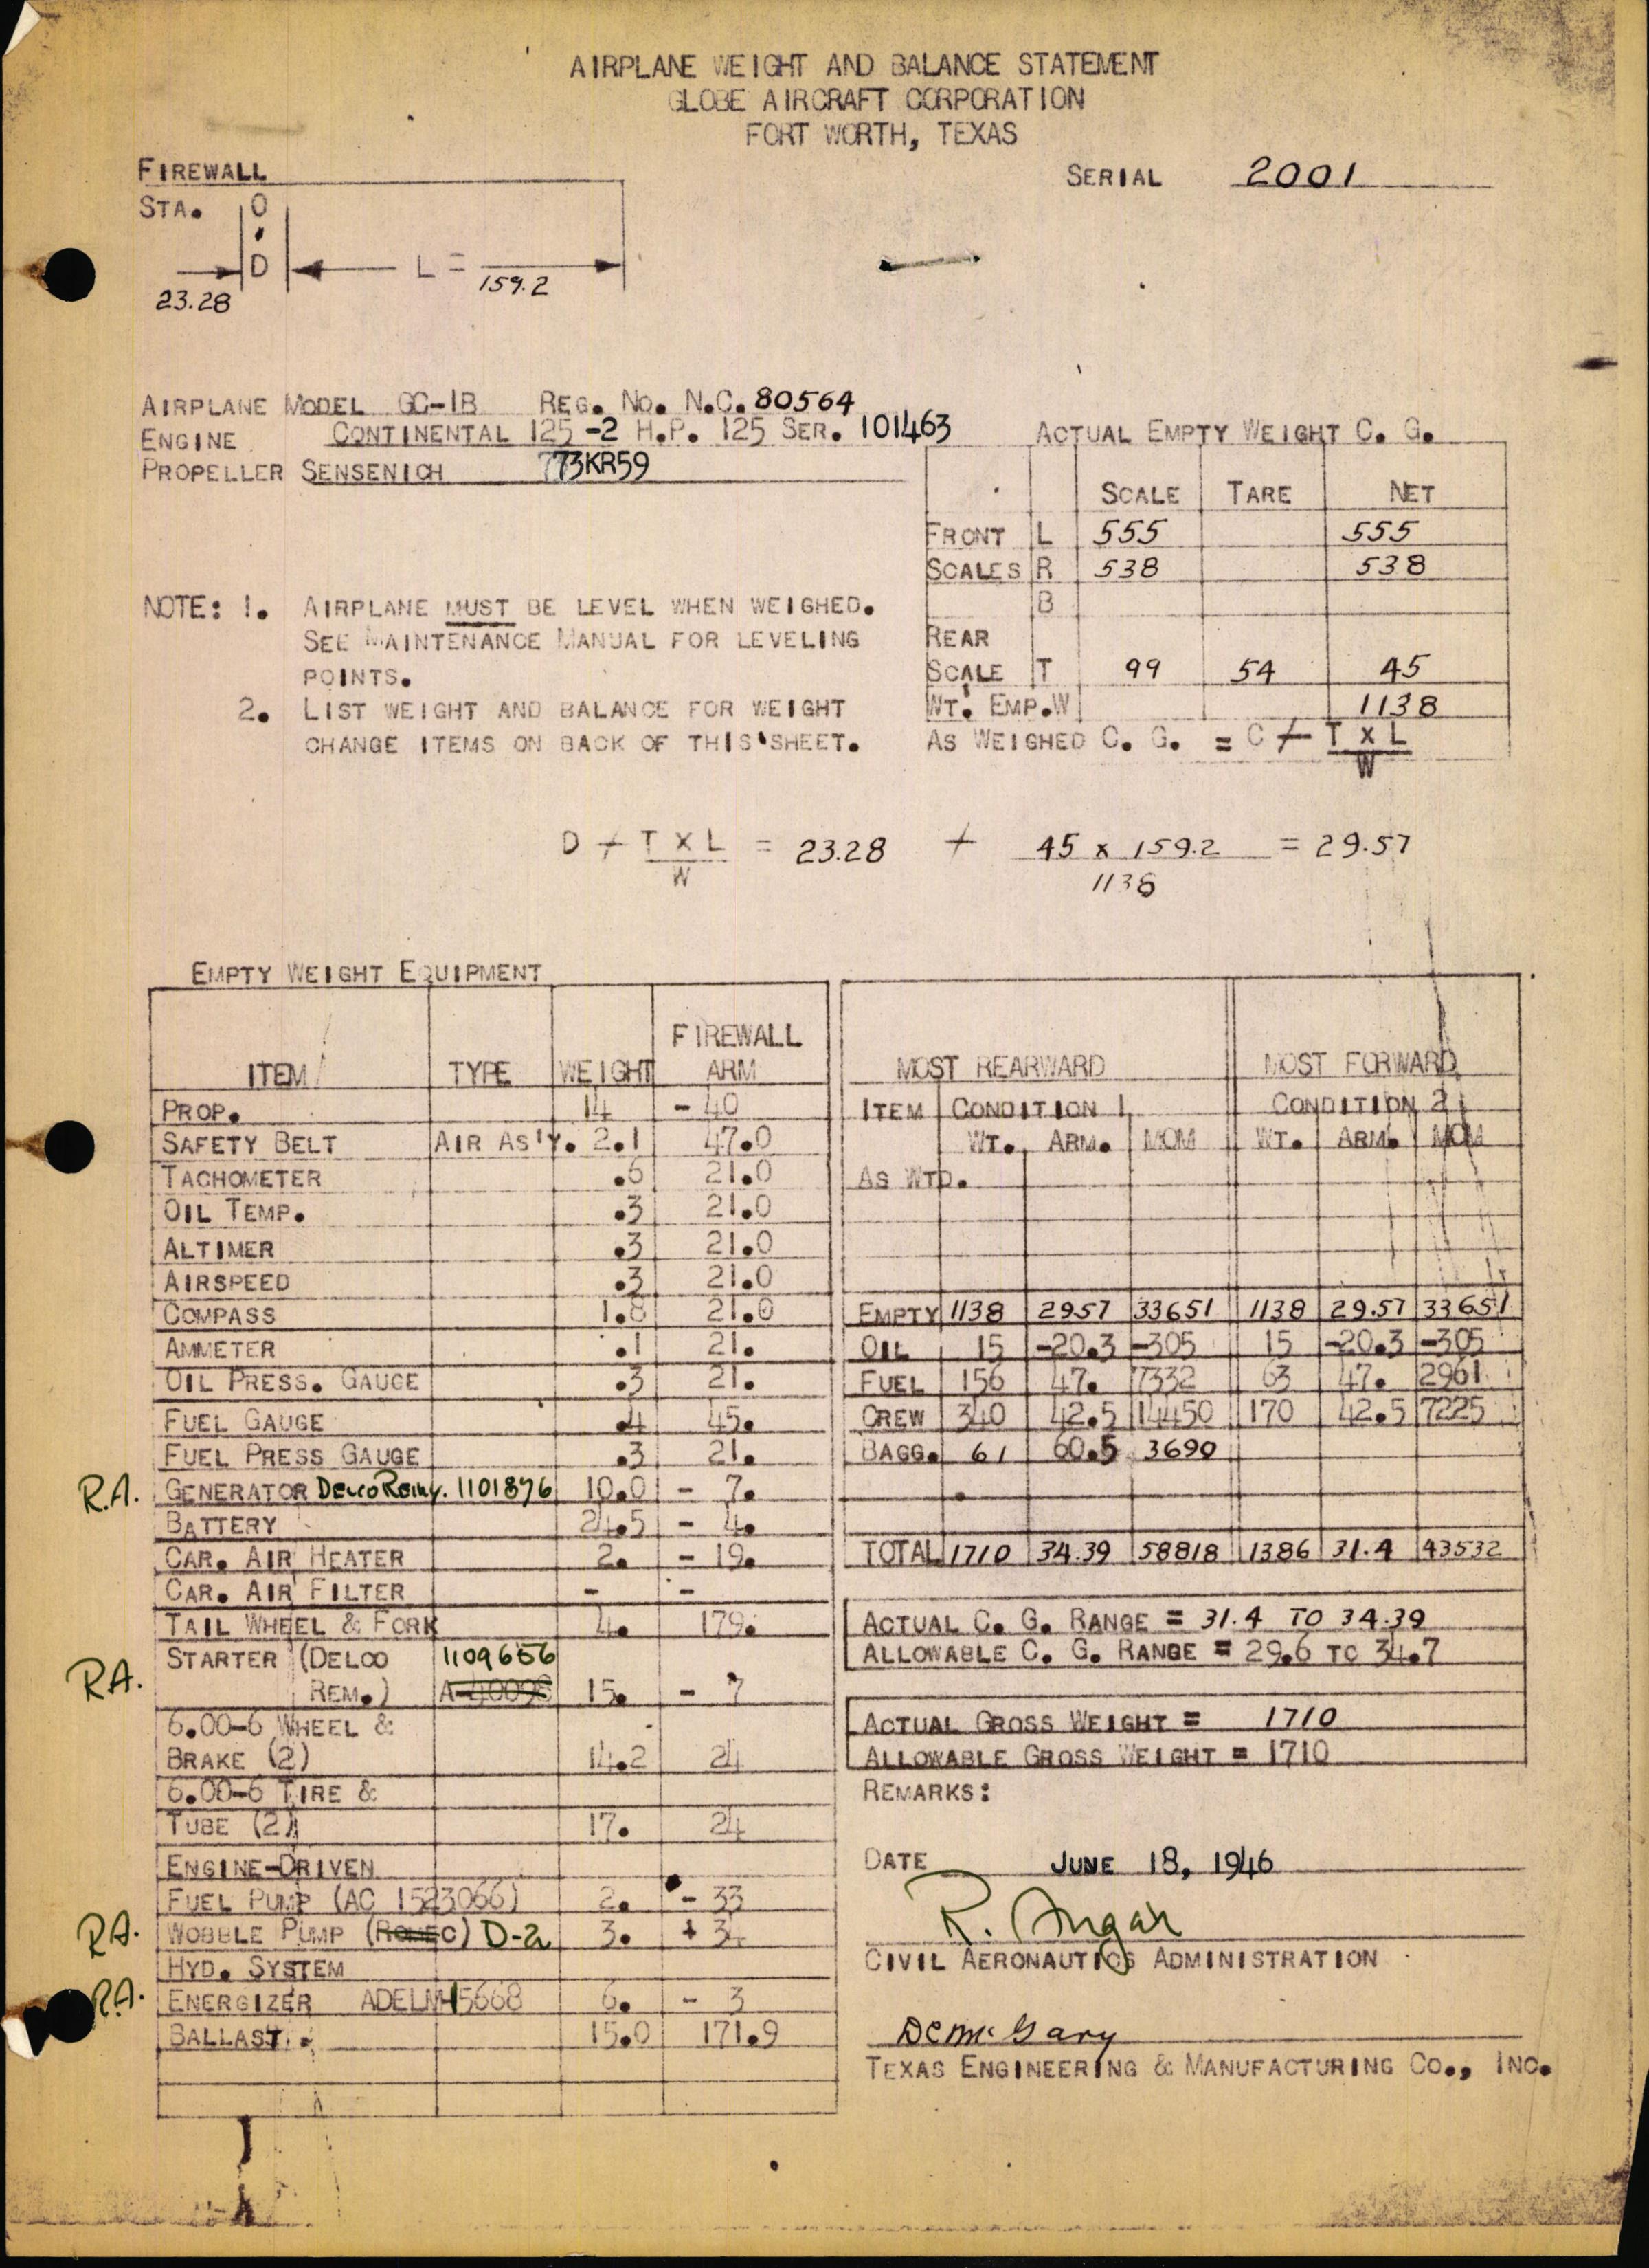 AIRPLANE WEIGHT AND BALANCE STATEMENT
GLOBE AIRCRAFT CORPORATION
FORT WORTH, TEXAS
FIREWALL
SERIAL 2001
STA. 0
D L = 159.2
23.28
AIRPLANE MODEL GC-1B REG. NO. N.C. 80564
ENGINE CONTINENTAL 125-2 H.P. 125 SER. 101463
PROPELLER SENSENICH 773KR59
ACTUAL EMPTY WEIGHT C. G.
SCALE TARE NET
FRONT L 555 555
SCALES R 538 538
B
REAR
SCALE T 99 54 45
WT. EMP.W 1138
AS WEIGHED C. G. = C + T X L
W
NOTE: 1. AIRPLANE MUST BE LEVEL WHEN WEIGHED.
SEE MAINTENANCE MANUAL FOR LEVELING
POINTS.
2. LIST WEIGHT AND BALANCE FOR WEIGHT
CHANGE ITEMS ON BACK OF THIS SHEET.
D + T X L = 23.28 + 45 x 159.2 = 29.57
W 1138
EMPTY WEIGHT EQUIPMENT
ITEM TYPE WEIGHT FIREWALL
ARM
PROP. 14 - 40
SAFETY BELT AIR AS'Y. 2.1 47.0
TACHOMETER .6 21.0
OIL TEMP. .3 21.0
ALTIMER .3 21.0
AIRSPEED .3 21.0
COMPASS 1.8 21.0
AMMETER .1 21.
OIL PRESS. GAUGE .3 21.
FUEL GAUGE .4 45.
FUEL PRESS GAUGE .3 21.
R.A. GENERATOR Delco Remy. 1101876 10.0 - 7.
BATTERY 24.5 - 4.
CAR. AIR HEATER 2. - 19.
CAR. AIR FILTER - -
TAIL WHEEL & FORK 4. 179.
STARTER (DELCO 1109656
R.A. REM.) A-40098 15. - 7
6.00-6 WHEEL &
BRAKE (2) 14.2 24
6.00-6 TIRE &
TUBE (2) 17. 24
ENGINE-DRIVEN
FUEL PUMP (AC 1523066) 2. - 33
R.A. WOBBLE PUMP (ROMEC) D-2 3. + 3.
HYD. SYSTEM
R.A. ENERGIZER ADELNH5668 6. - 3
BALLAST. 15.0 171.9
MOST REARWARD MOST FORWARD
ITEM CONDITION 1 CONDITION 2
WT. ARM. MOM WT. ARM. MOM
AS WTD.
EMPTY 1138 2957 33651 1138 29.57 33651
OIL 15 -20.3 -305 15 -20.3 -305
FUEL 156 47. 7332 63 47. 2961
CREW 340 42.5 14450 170 42.5 7225
BAGG. 61 60.5 3690
TOTAL 1710 34.39 58818 1386 31.4 43532
ACTUAL C. G. RANGE = 31.4 TO 34.39
ALLOWABLE C. G. RANGE = 29.6 TO 34.7
ACTUAL GROSS WEIGHT = 1710
ALLOWABLE GROSS WEIGHT = 1710
REMARKS:
DATE JUNE 18, 1946
R. Angar
CIVIL AERONAUTICS ADMINISTRATION
DC McGary
TEXAS ENGINEERING & MANUFACTURING CO., INC.